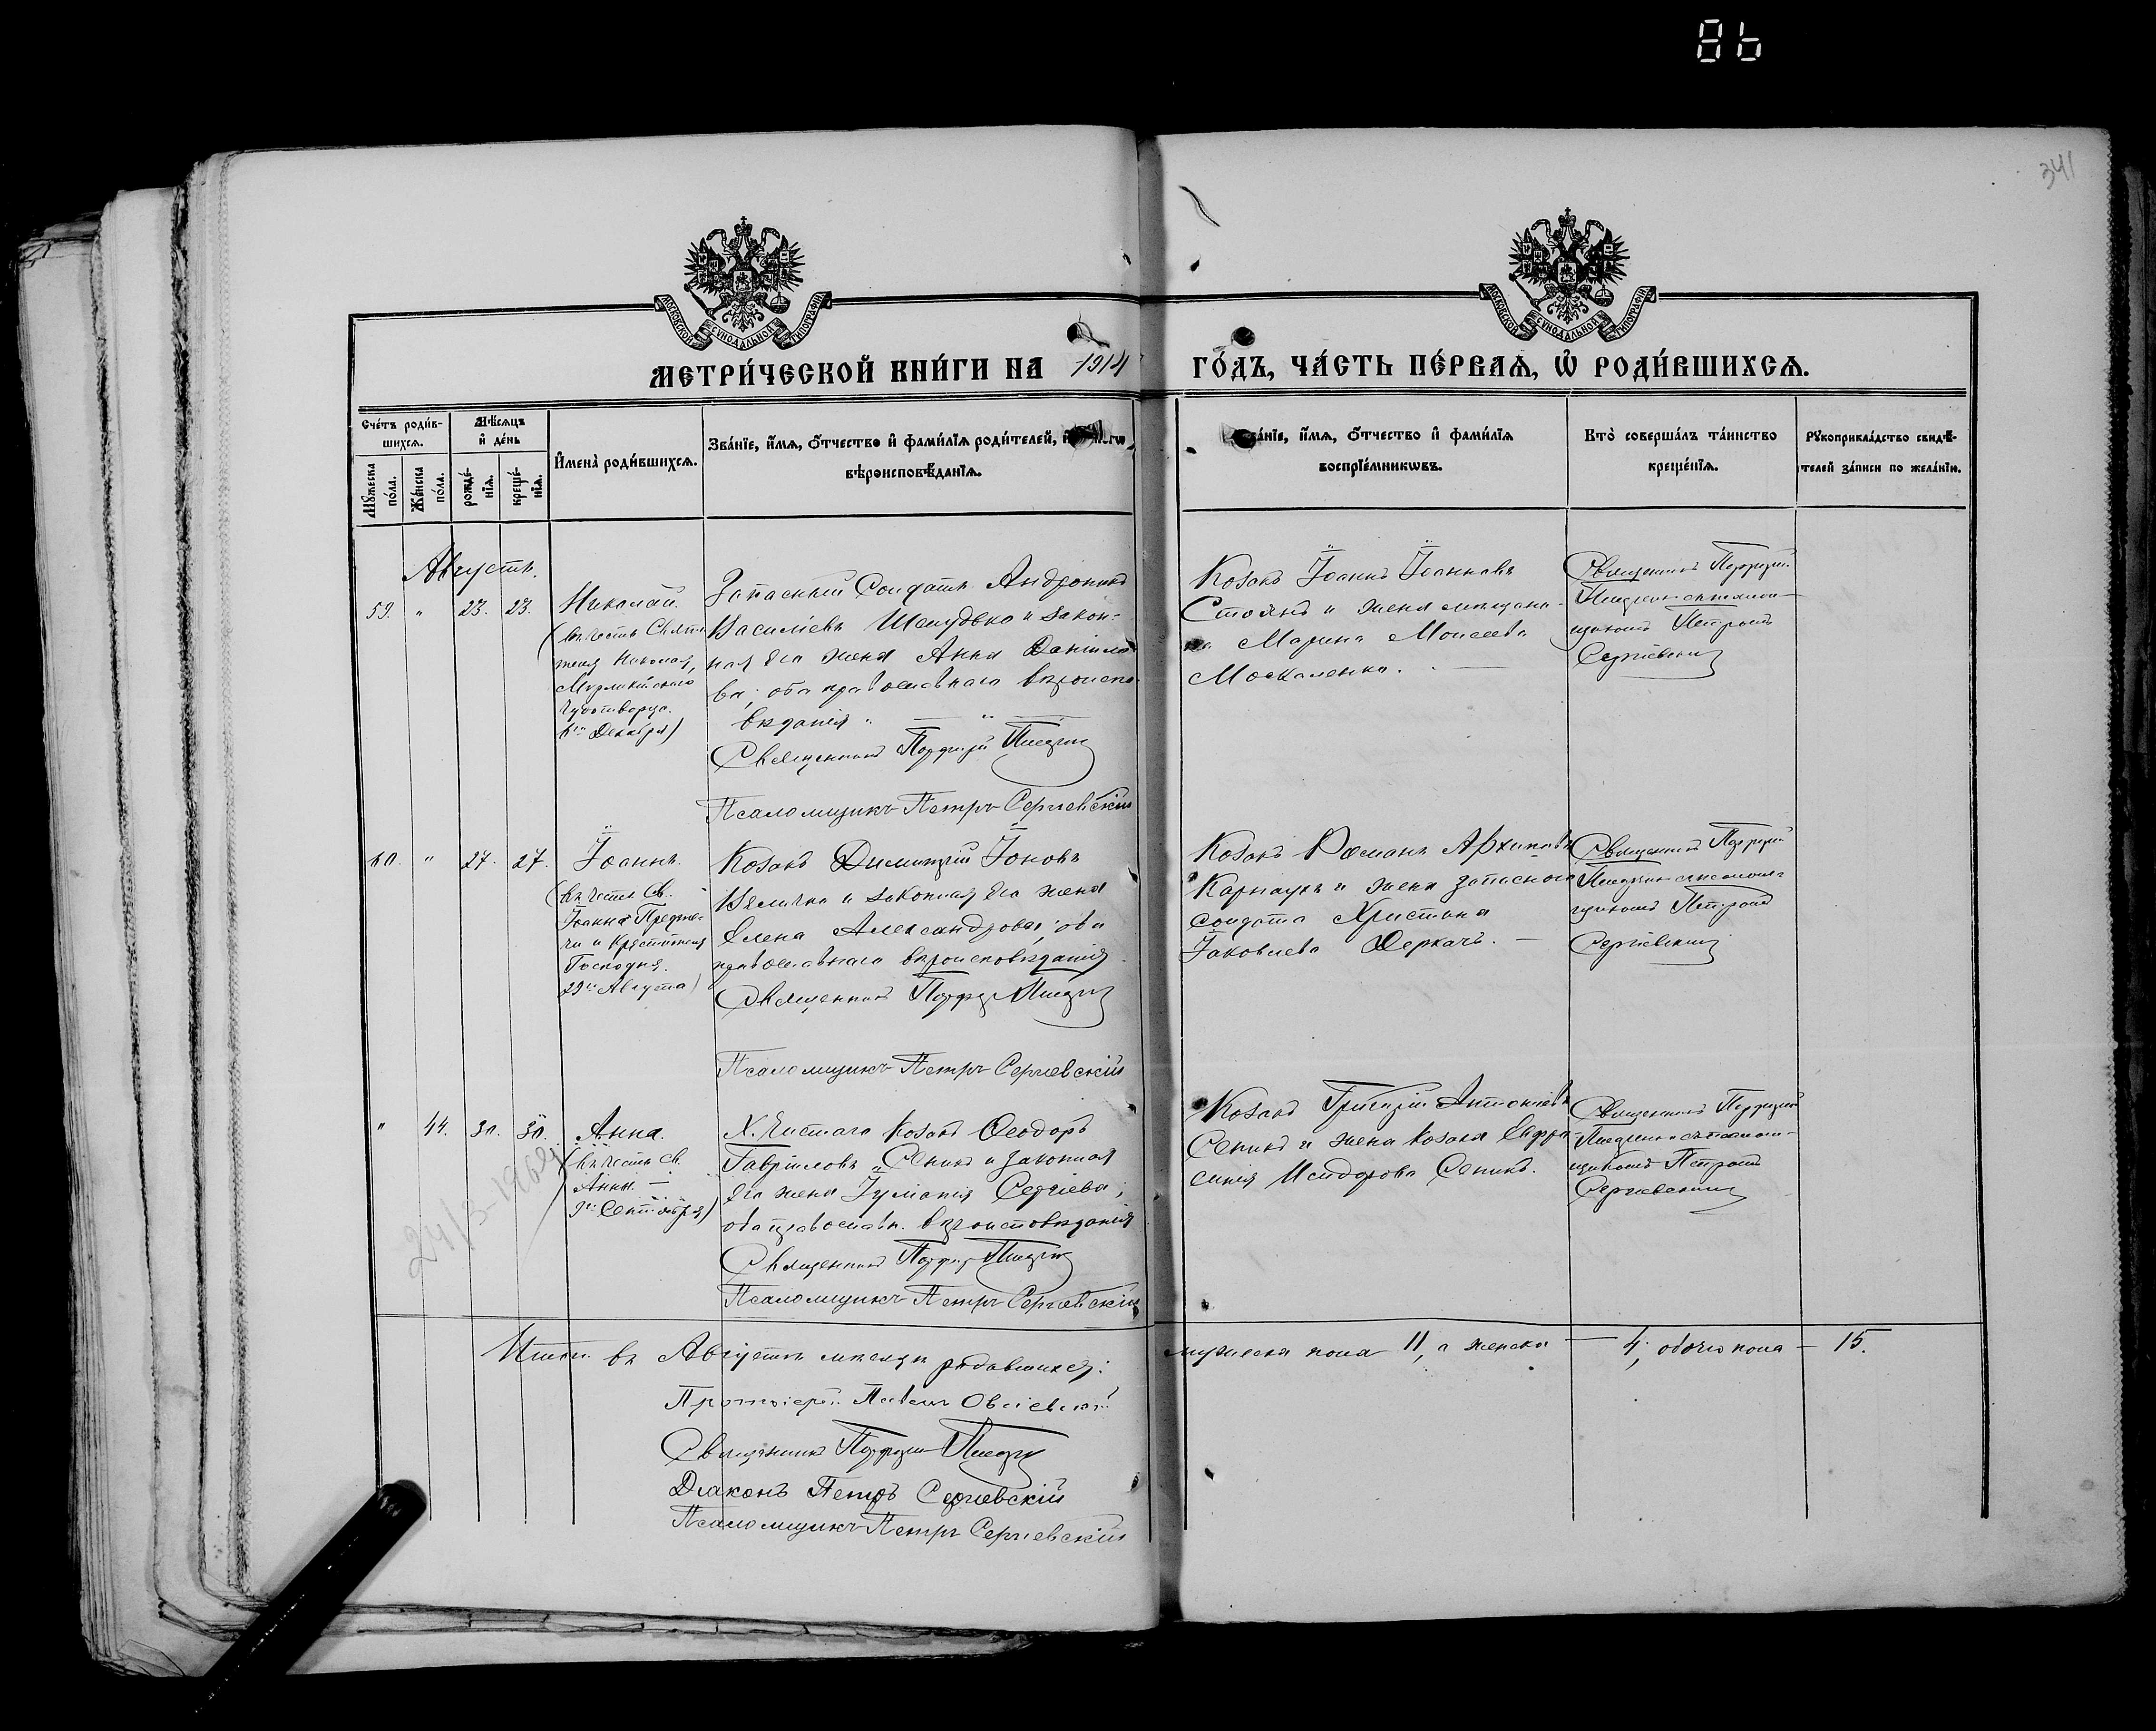 86
341
МОСКОВСКОЙ СѴНОДАЛЬНОЙ ТИПОГРАФІИ
МОСКОВСКОЙ СѴНОДАЛЬНОЙ ТИПОГРАФІИ
МЕТРИ́ЧЕСКОЙ КНИ́ГИ НА 1914 ГО́ДЪ, ЧА́СТЬ ПЕ́РВАѦ, Ѿ РОДИ́ВШИХСѦ.
Сче́тъ роди́в-
шихсѧ.
Мꙋжеска по́ла.
Же́нска по́ла.
Мѣ́сѧцъ и҆ де́нь
рожде́-
нїѧ.
креще́-
нїѧ.
И҆мена̀ роди́вшихсѧ.
Зва́нїе, и҆́мѧ, ѻ҆́тчество и҆ фами́лїѧ роди́телей, и҆
вѣроисповѣ́данїѧ.
и҆́мѧ, ѻ҆́тчество и҆ фами́лїѧ
воспрїе́мникѡвъ.
Кто̀ соверша́лъ та́инство
креще́нїѧ.
Рꙋкоприкла́дство свидѣ́-
телей за́писи по жела́нїю.
Августъ.
59. " 23. 23.
Николай.
(въ честь Святи-
теля Николая,
Мѵрликійскаго
Чудотворца.
6го Декабря)
Запасный Солдатъ Андроникъ
Василіевъ Шелудько и закон-
ная его жена Анна Даніило-
ва; оба православнаго вѣроиспо-
вѣданія
Священникъ Порфирій
Псаломщикъ Петръ Сергіевскій
Козакъ Іоаннъ Іоанновъ
Стоянъ и жена мѣщани-
на Марина Моисеева
Москаленко.
Священникъ Порфирій
съ псалом-
щикомъ Петромъ
Сергіевскимъ
60. " 27. 27.
Іоаннъ.
(въ честь Св.
Іоанна Предте-
чи и Крестителя
Господня.
29го Августа)
Козакъ Димитрій Іоновъ
Величко и законная его жена
Елена Александрова; оба
православнаго вѣроисповѣданія
Священникъ Порфирій
Псаломщикъ Петръ Сергіевскій
Козакъ Романъ Архиповъ
Карнаухъ и жена запаснаго
солдата Христина
Іаковлева Деркачъ.
Священникъ Порфирій
съ псалом-
щикомъ Петромъ
Сергіевскимъ
" 44. 30. 30.
Анна.
(въ честь св.
Анны.
9го Сентября)
Х. Чистаго Козакъ Ѳеодоръ
Гавріиловъ Сеникъ и законная
его жена Іуліанія Сергіева;
оба православн. вѣроисповѣданія
Священникъ Порфирій
Псаломщикъ Петръ Сергіевскій
Козакъ Григорій Антоніевъ
Сеникъ и жена козака Евфро-
синія Исидорова Сеникъ.
Священникъ Порфирій
съ псалом-
щикомъ Петромъ
Сергіевскимъ
Итого въ Августѣ мѣсяцѣ родившихся: мужеска пола 11, а женска — 4; обоего пола — 15.
Протоіерей Павелъ
Священникъ Порфирій
Діаконъ Петръ Сергіевскій
Псаломщикъ Петръ Сергіевскій